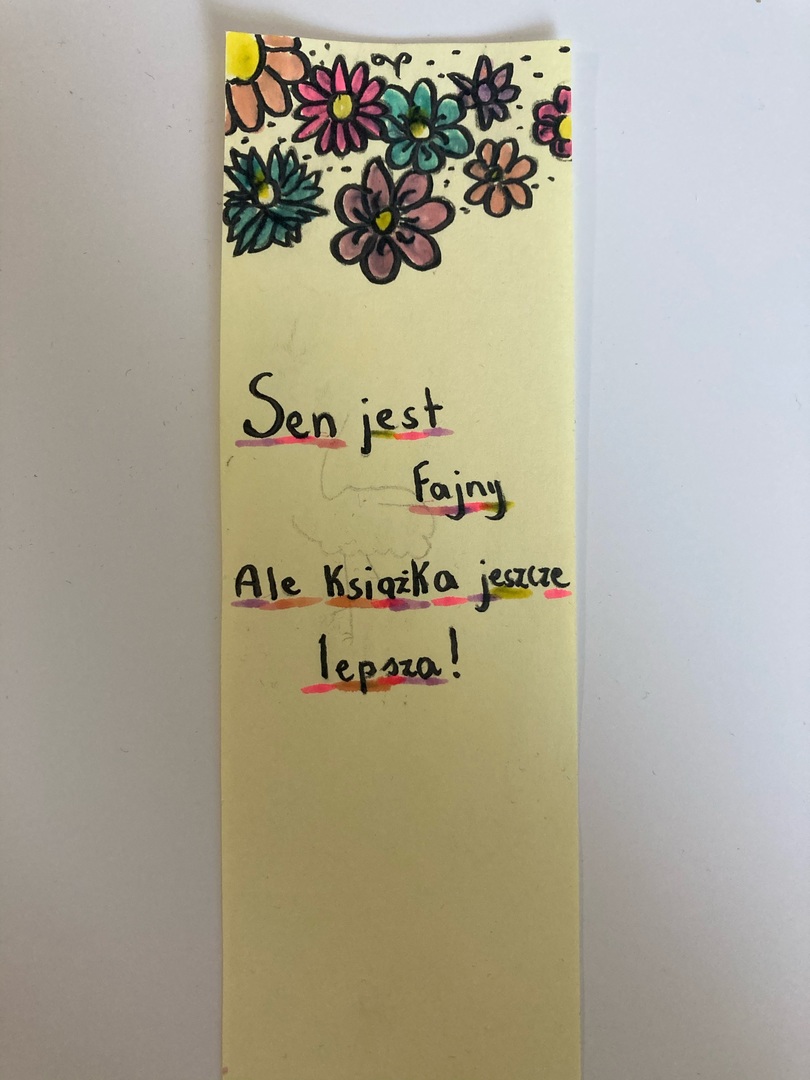 Sen jest
fajny
Ale Książka jeszcze
lepsza!